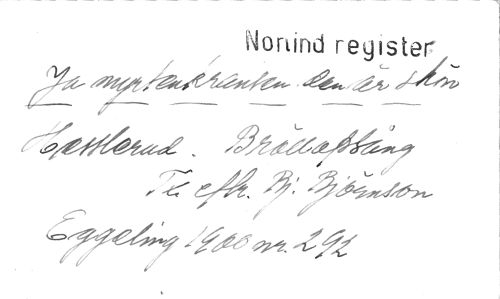 Nonind register
Ja myrtenkransen den är skön
Hesslerud. Bröllopssång
Tl. efr. Bj. Björnson
Eggeling 1900 nr. 292